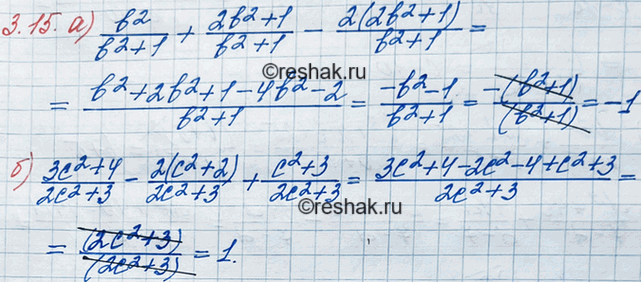 3.15. а) b²/(b²+1) + (2b²+1)/(b²+1) − 2(2b²+1)/(b²+1) =
©reshak.ru
= (b²+2b²+1−4b²−2)/(b²+1) = (−b²−1)/(b²+1) = −(b²+1)/(b²+1) = −1
б) (3c²+4)/(2c²+3) − 2(c²+2)/(2c²+3) + (c²+3)/(2c²+3) = (3c²+4−2c²−4+c²+3)/(2c²+3) =
©reshak.ru
= (2c²+3)/(2c²+3) = 1.